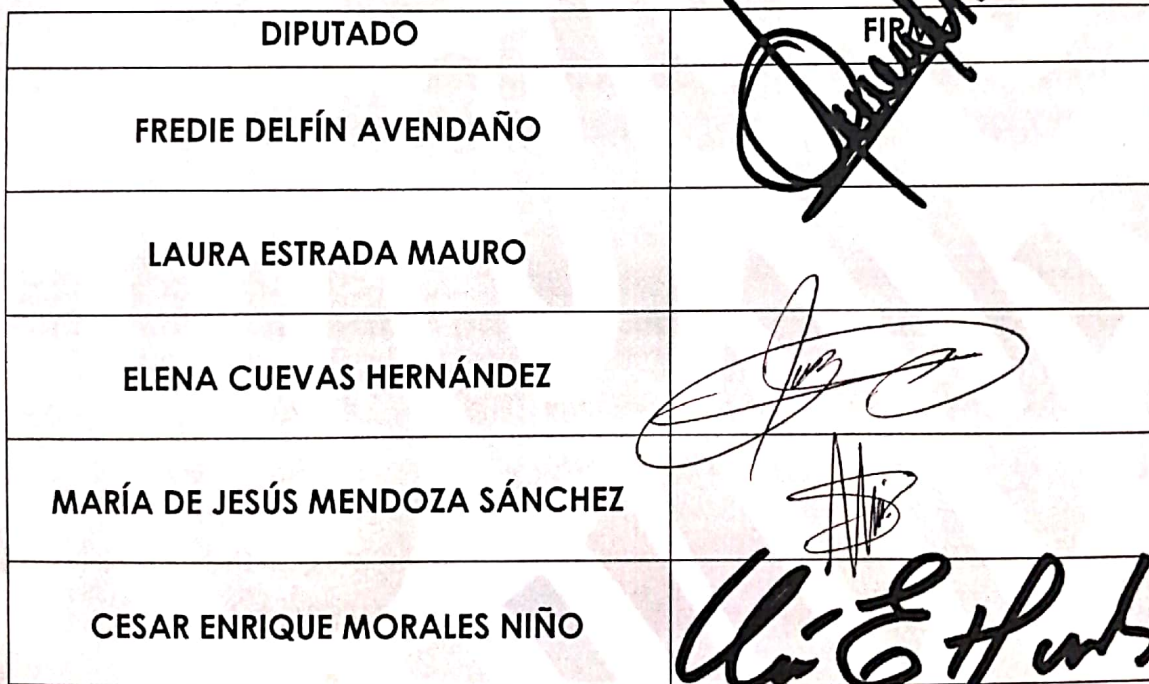 DIPUTADO FIRMA
FREDIE DELFÍN AVENDAÑO
LAURA ESTRADA MAURO
ELENA CUEVAS HERNÁNDEZ
MARÍA DE JESÚS MENDOZA SÁNCHEZ
CESAR ENRIQUE MORALES NIÑO